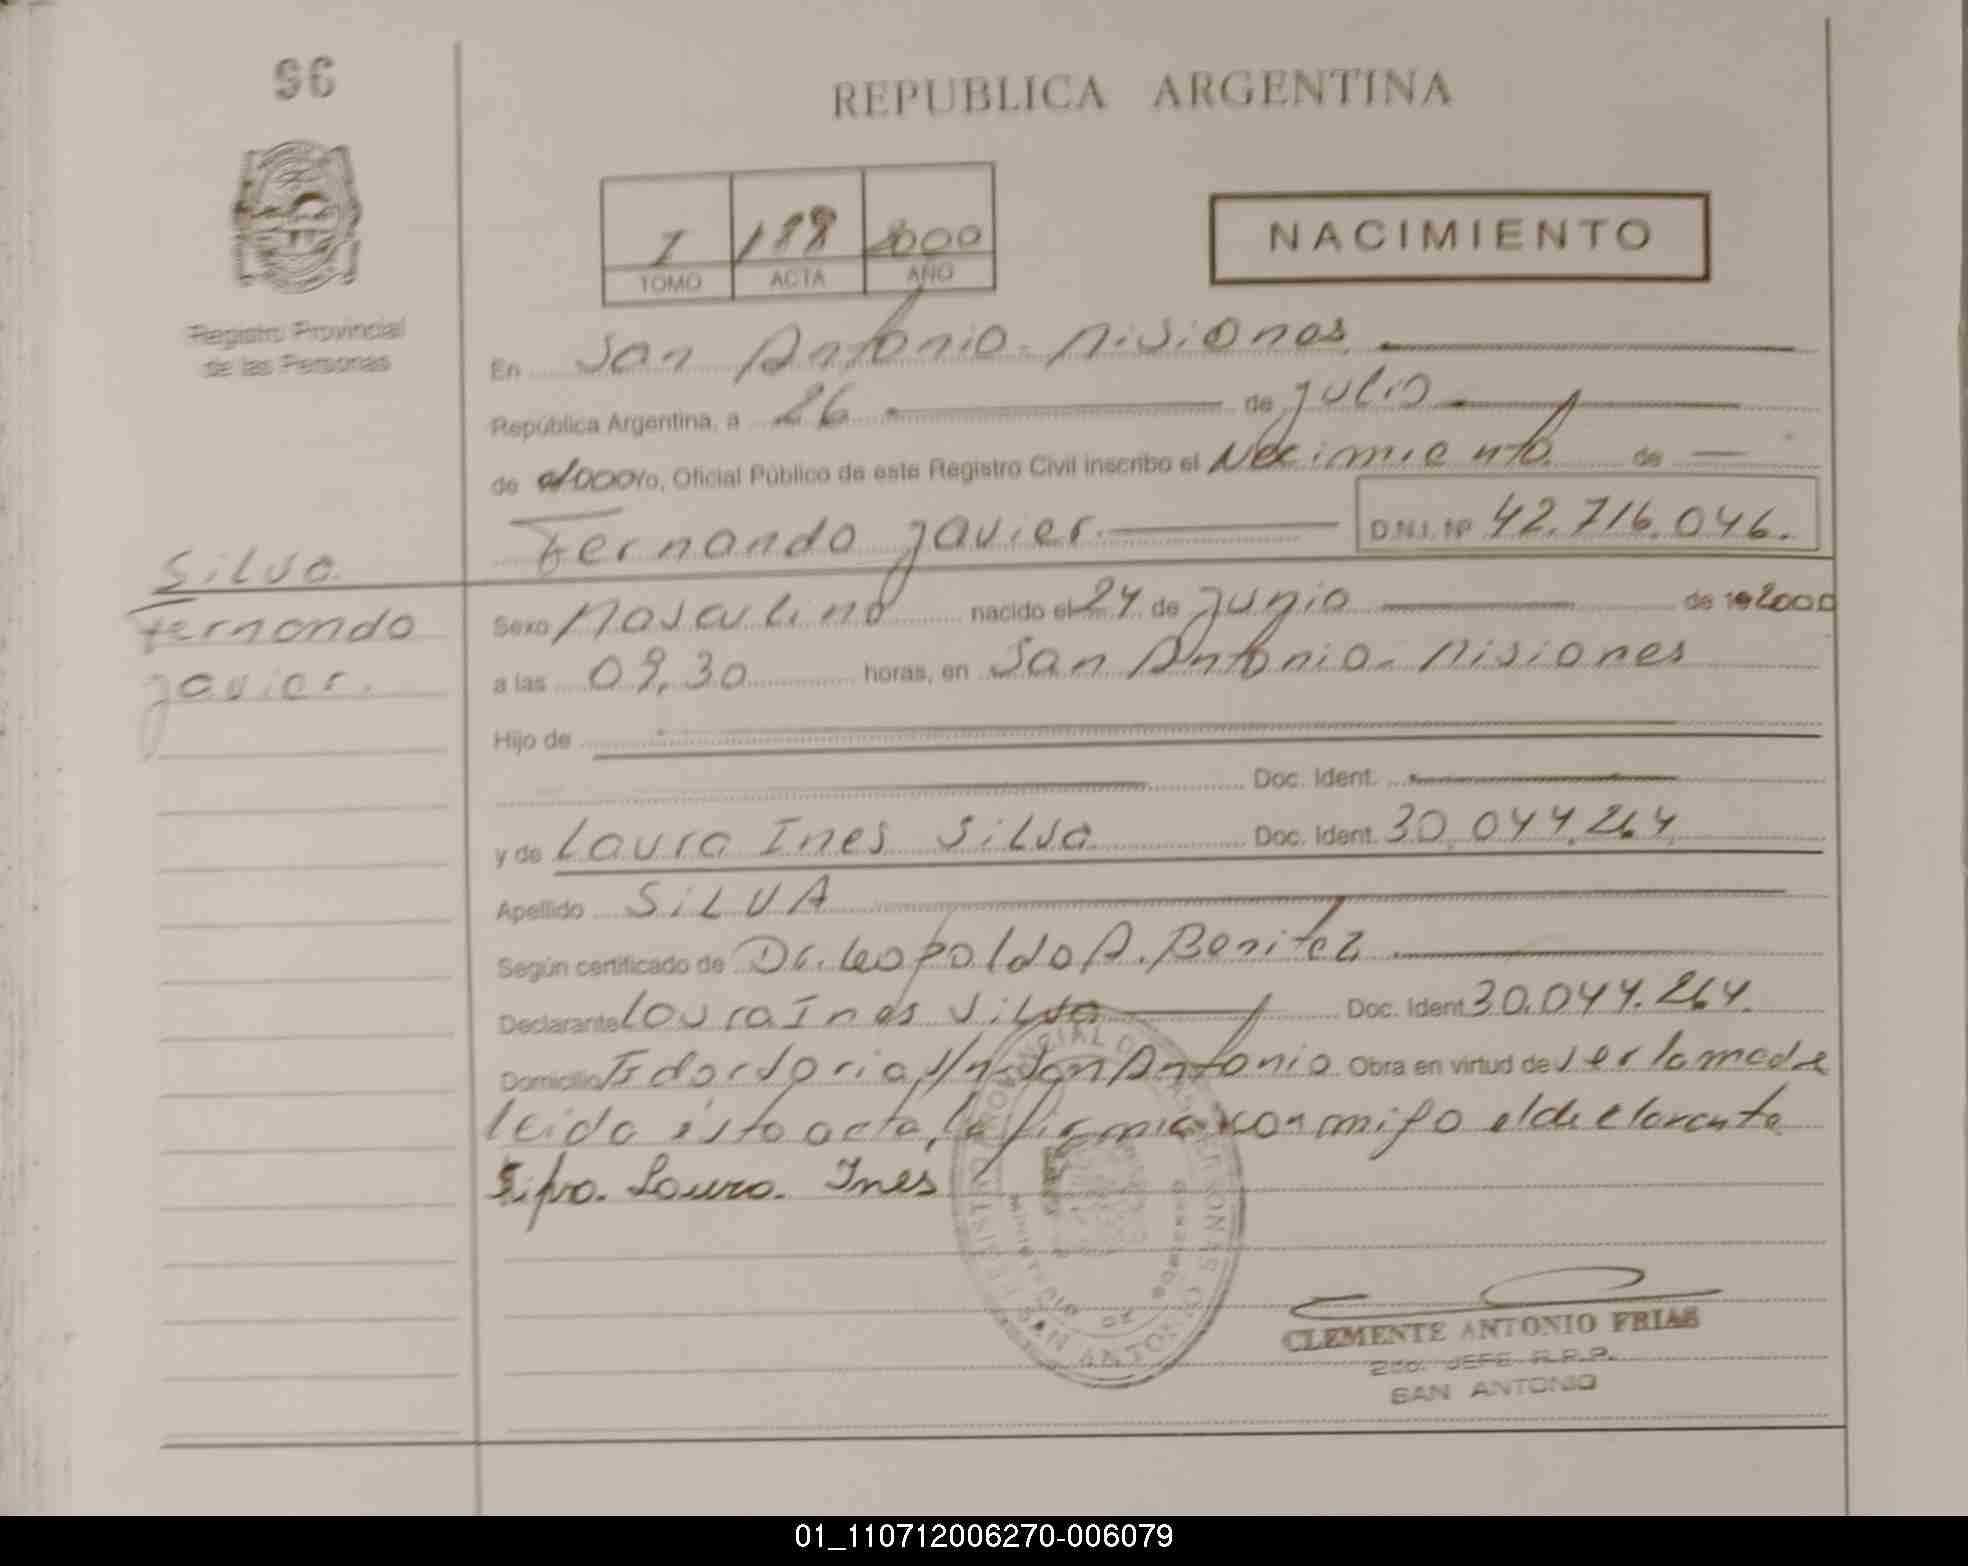 96
REPUBLICA ARGENTINA
I 188 2000
TOMO ACTA AÑO
NACIMIENTO
Registro Provincial
de las Personas
En San Antonio - Misiones
República Argentina, a 26 de julio
de 2000 yo, Oficial Público de este Registro Civil inscribo el Nacimiento de
Fernando Javier. D.N.I. Nº 42.716.046.
Silva
Fernando
Javier.
Sexo Masculino nacido el 24 de Junio de 19 2000
a las 09,30 horas, en San Antonio - Misiones
Hijo de
Doc. Ident.
y de Laura Ines Silva Doc. Ident. 30.044.264
Apellido SiLVA
Según certificado de Dr. Leopoldo A. Benitez
Declarante Laura Ines Silva Doc. Ident. 30.044.264.
Domicilio S/n San Antonio Obra en virtud de ser la madre
leida esta acta, la firma con migo el declarante
Silva. Laura. Ines
SAN ANTONIO
CLEMENTE ANTONIO FRIAS
2do. JEFE R.P.P.
SAN ANTONIO
01_110712006270-006079